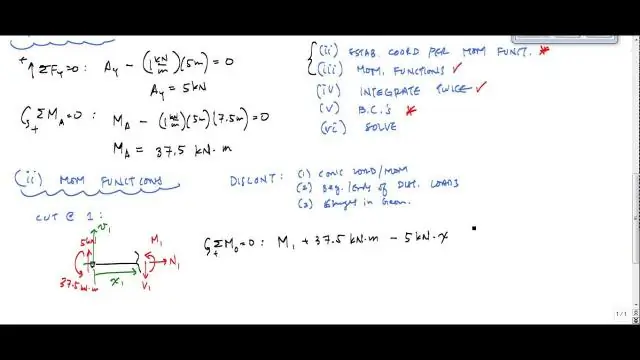 +↑ ΣFy=0: Ay - (1 kN/m)(5m) = 0
Ay = 5kN
ΣM_A=0: M_A - (1 kN/m)(5m)(7.5m) = 0
M_A = 37.5 kN·m
(ii) ESTAB. COORD PER MOM FUNCT. *
(iii) MOM. FUNCTIONS ✓
(iv) INTEGRATE TWICE ✓
(v) B.C.'s *
(vi) SOLVE
(ii) MOM FUNCTIONS
DISCONT: (1) CONC LOAD/MOM
(2) Beg./Ends of DIST. LOADS
(3) in Geom.
CUT @ 1:
v₁
5kN
M₁
N₁
37.5 kN·m
x₁
V₁
+ ΣM₀=0: M₁ + 37.5 kN·m - 5kN·x
1/1